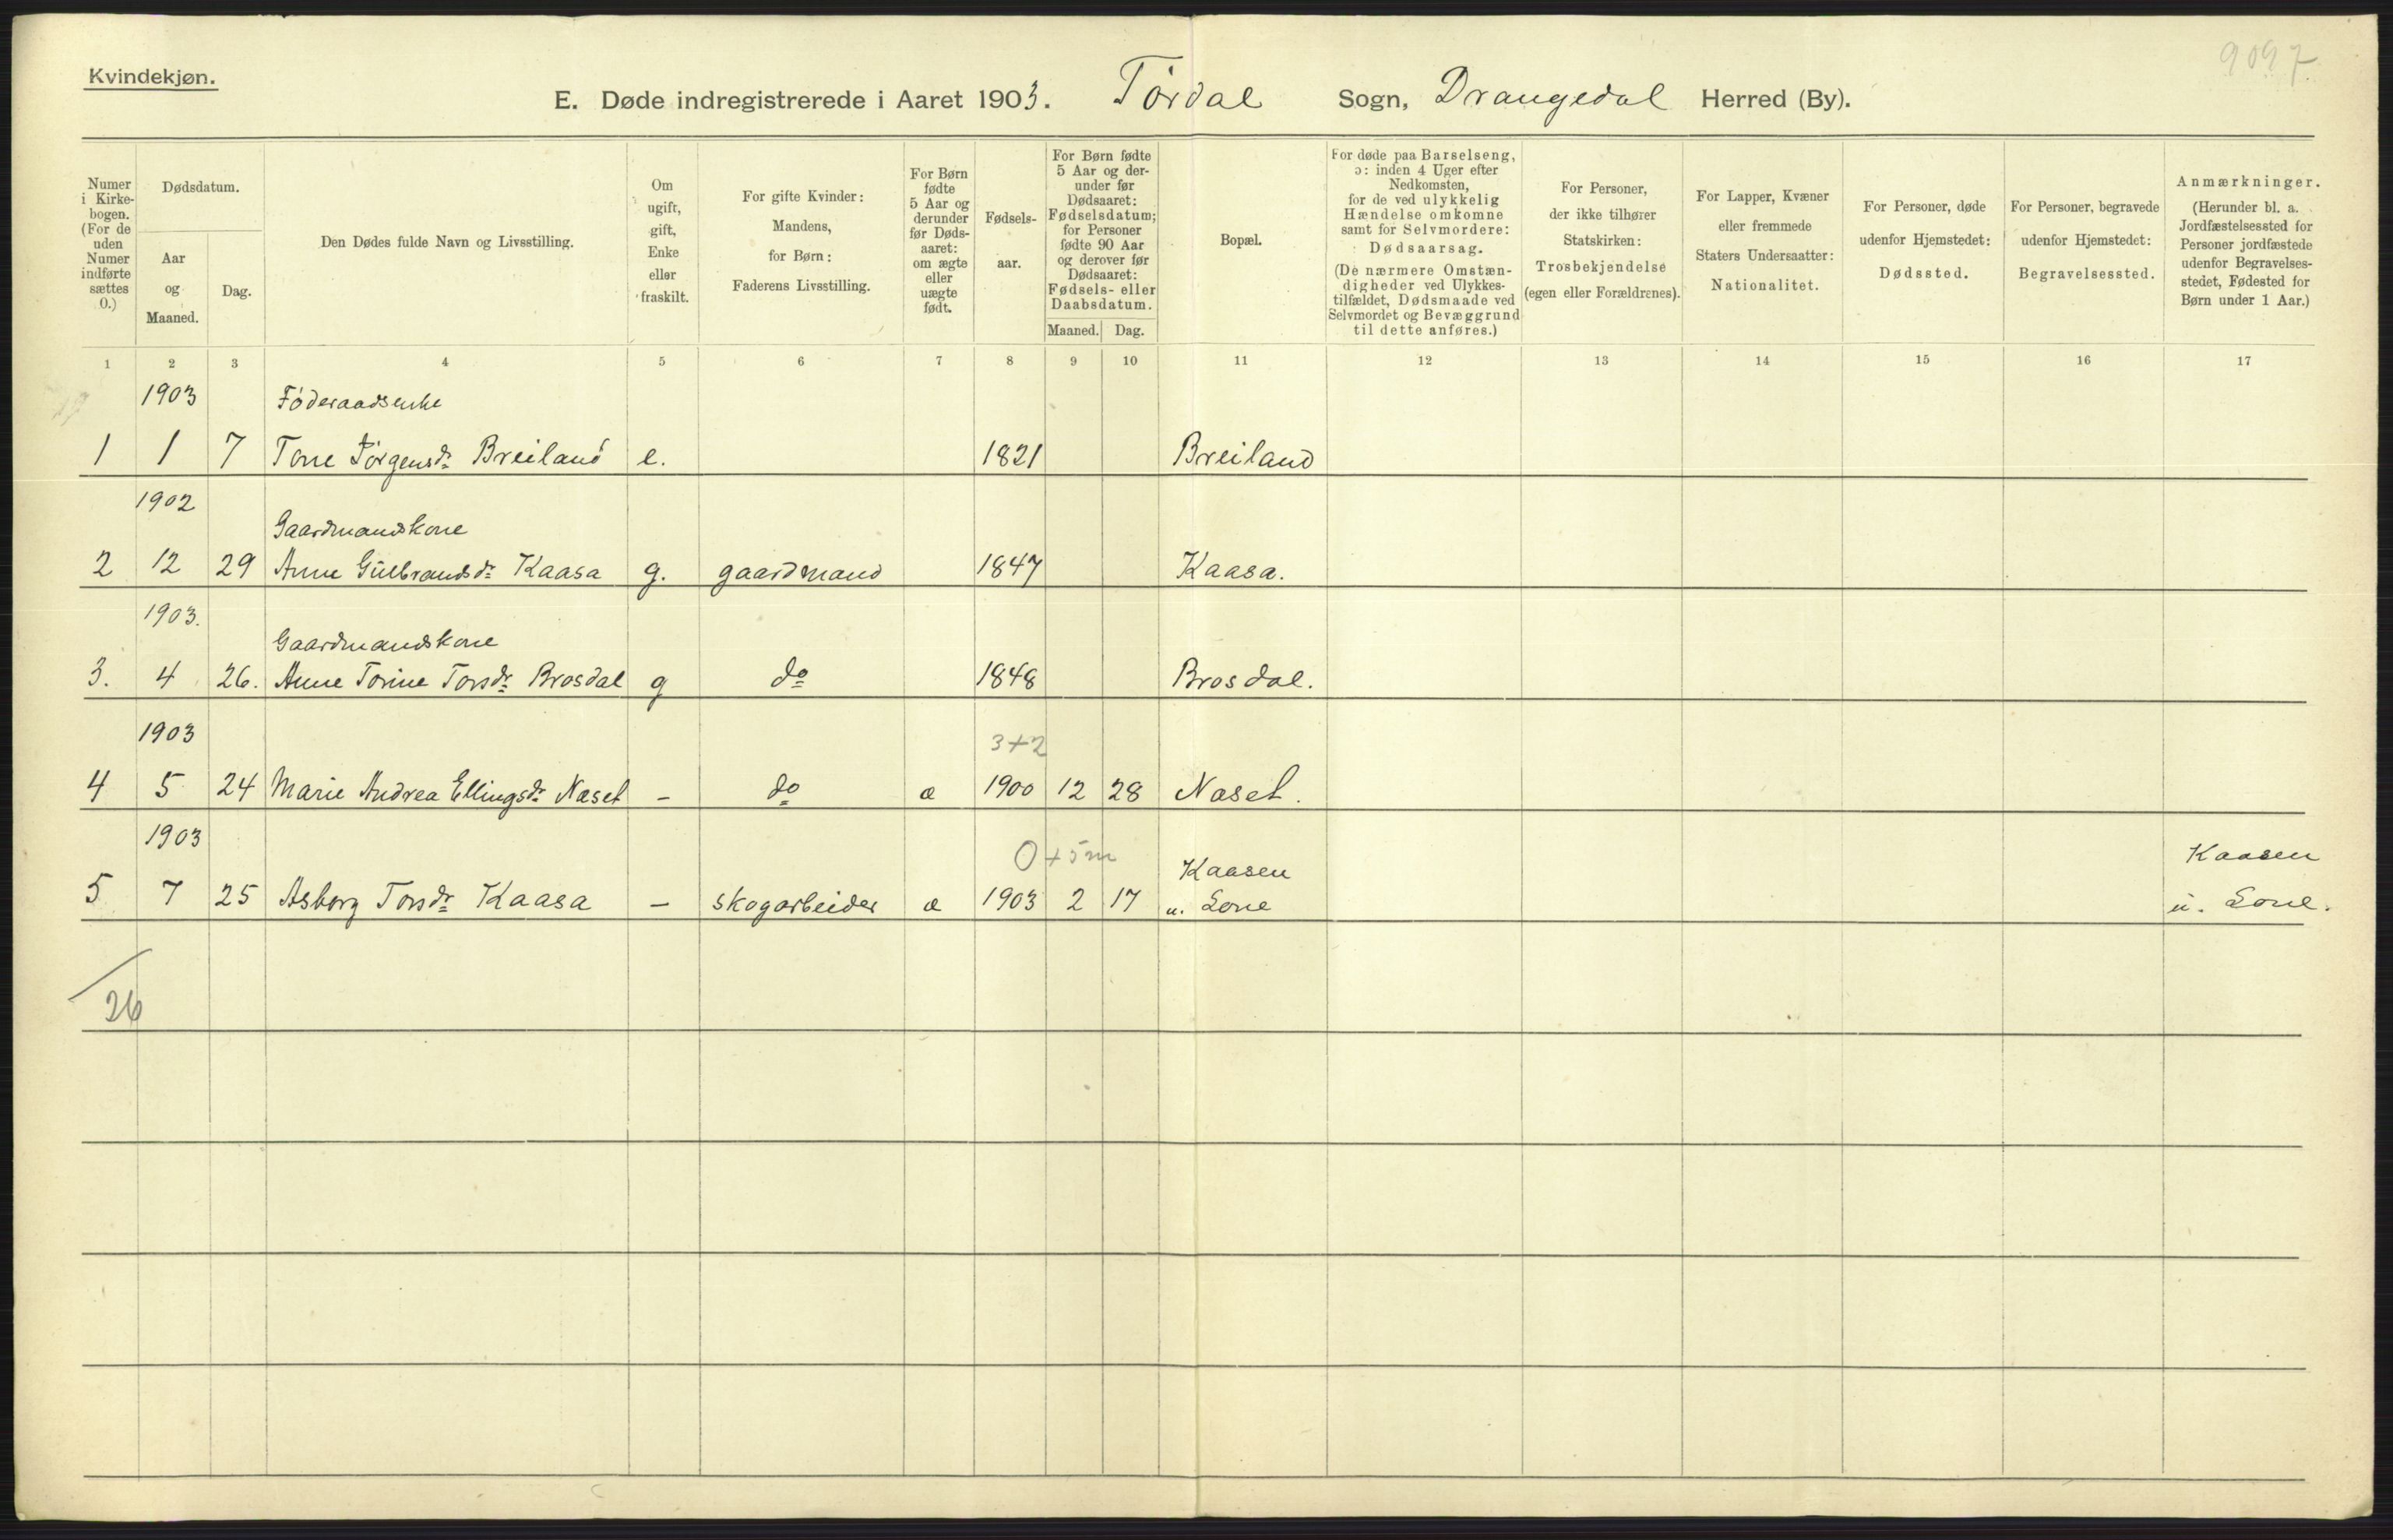 9097
Kvindekjøn.
E. Døde indregistrerede i Aaret 1903. Tørdal Sogn, Drangedal Herred (By).
Numer
i Kirke-
bogen.
(For de
uden
Numer
indførte
sættes
0.)
Dødsdatum.
Aar
og
Maaned.
Dag.
Den Dødes fulde Navn og Livsstilling.
Om
ugift,
gift,
Enke
eller
fraskilt.
For gifte Kvinder:
Mandens,
for Børn:
Faderens Livsstilling.
For Børn
fødte
5 Aar og
derunder
før Døds-
aaret:
om ægte
eller
uægte
født.
Fødsels-
aar.
For Børn fødte
5 Aar og der-
under før
Dødsaaret:
Fødselsdatum;
for Personer
fødte 90 Aar
og derover før
Dødsaaret:
Fødsels- eller
Daabsdatum.
Maaned. Dag.
Bopæl.
For døde paa Barselseng,
ɔ: inden 4 Uger efter
Nedkomsten,
for de ved ulykkelig
Hændelse omkomne
samt for Selvmordere:
Dødsaarsag.
(De nærmere Omstæn-
digheder ved Ulykkes-
tilfældet, Dødsmaade ved
Selvmordet og Bevæggrund
til dette anføres.)
For Personer,
der ikke tilhører
Statskirken:
Trosbekjendelse
(egen eller Forældrenes).
For Lapper, Kvæner
eller fremmede
Staters Undersaatter:
Nationalitet.
For Personer, døde
udenfor Hjemstedet:
Dødssted.
For Personer, begravede
udenfor Hjemstedet:
Begravelsessted.
Anmærkninger.
(Herunder bl. a.
Jordfæstelsessted for
Personer jordfæstede
udenfor Begravelses-
stedet, Fødested for
Børn under 1 Aar.)
1 2 3 4 5 6 7 8 9 10 11 12 13 14 15 16 17
1903 Føderaadsenke
1 1 7 Tone Jørgensdr Breiland e. 1821 Breiland
1902
Gaardmandskone
2 12 29 Anne Gulbrandsdr Kaasa g. gaardmand 1847 Kaasa.
1903.
Gaardmandskone
3. 4 26. Anne Torine Torsdr Brosdal g do 1848 Brosdal.
1903 3+2
4 5 24 Marie Andrea Ellingsdr Næset - do æ 1900 12 28 Næset.
1903 0+5m Kaasen Kaasen
5 7 25 Asborg Torsdr Kaasa - skogarbeider æ 1903 2 17 u. Lone u. Lone.
26